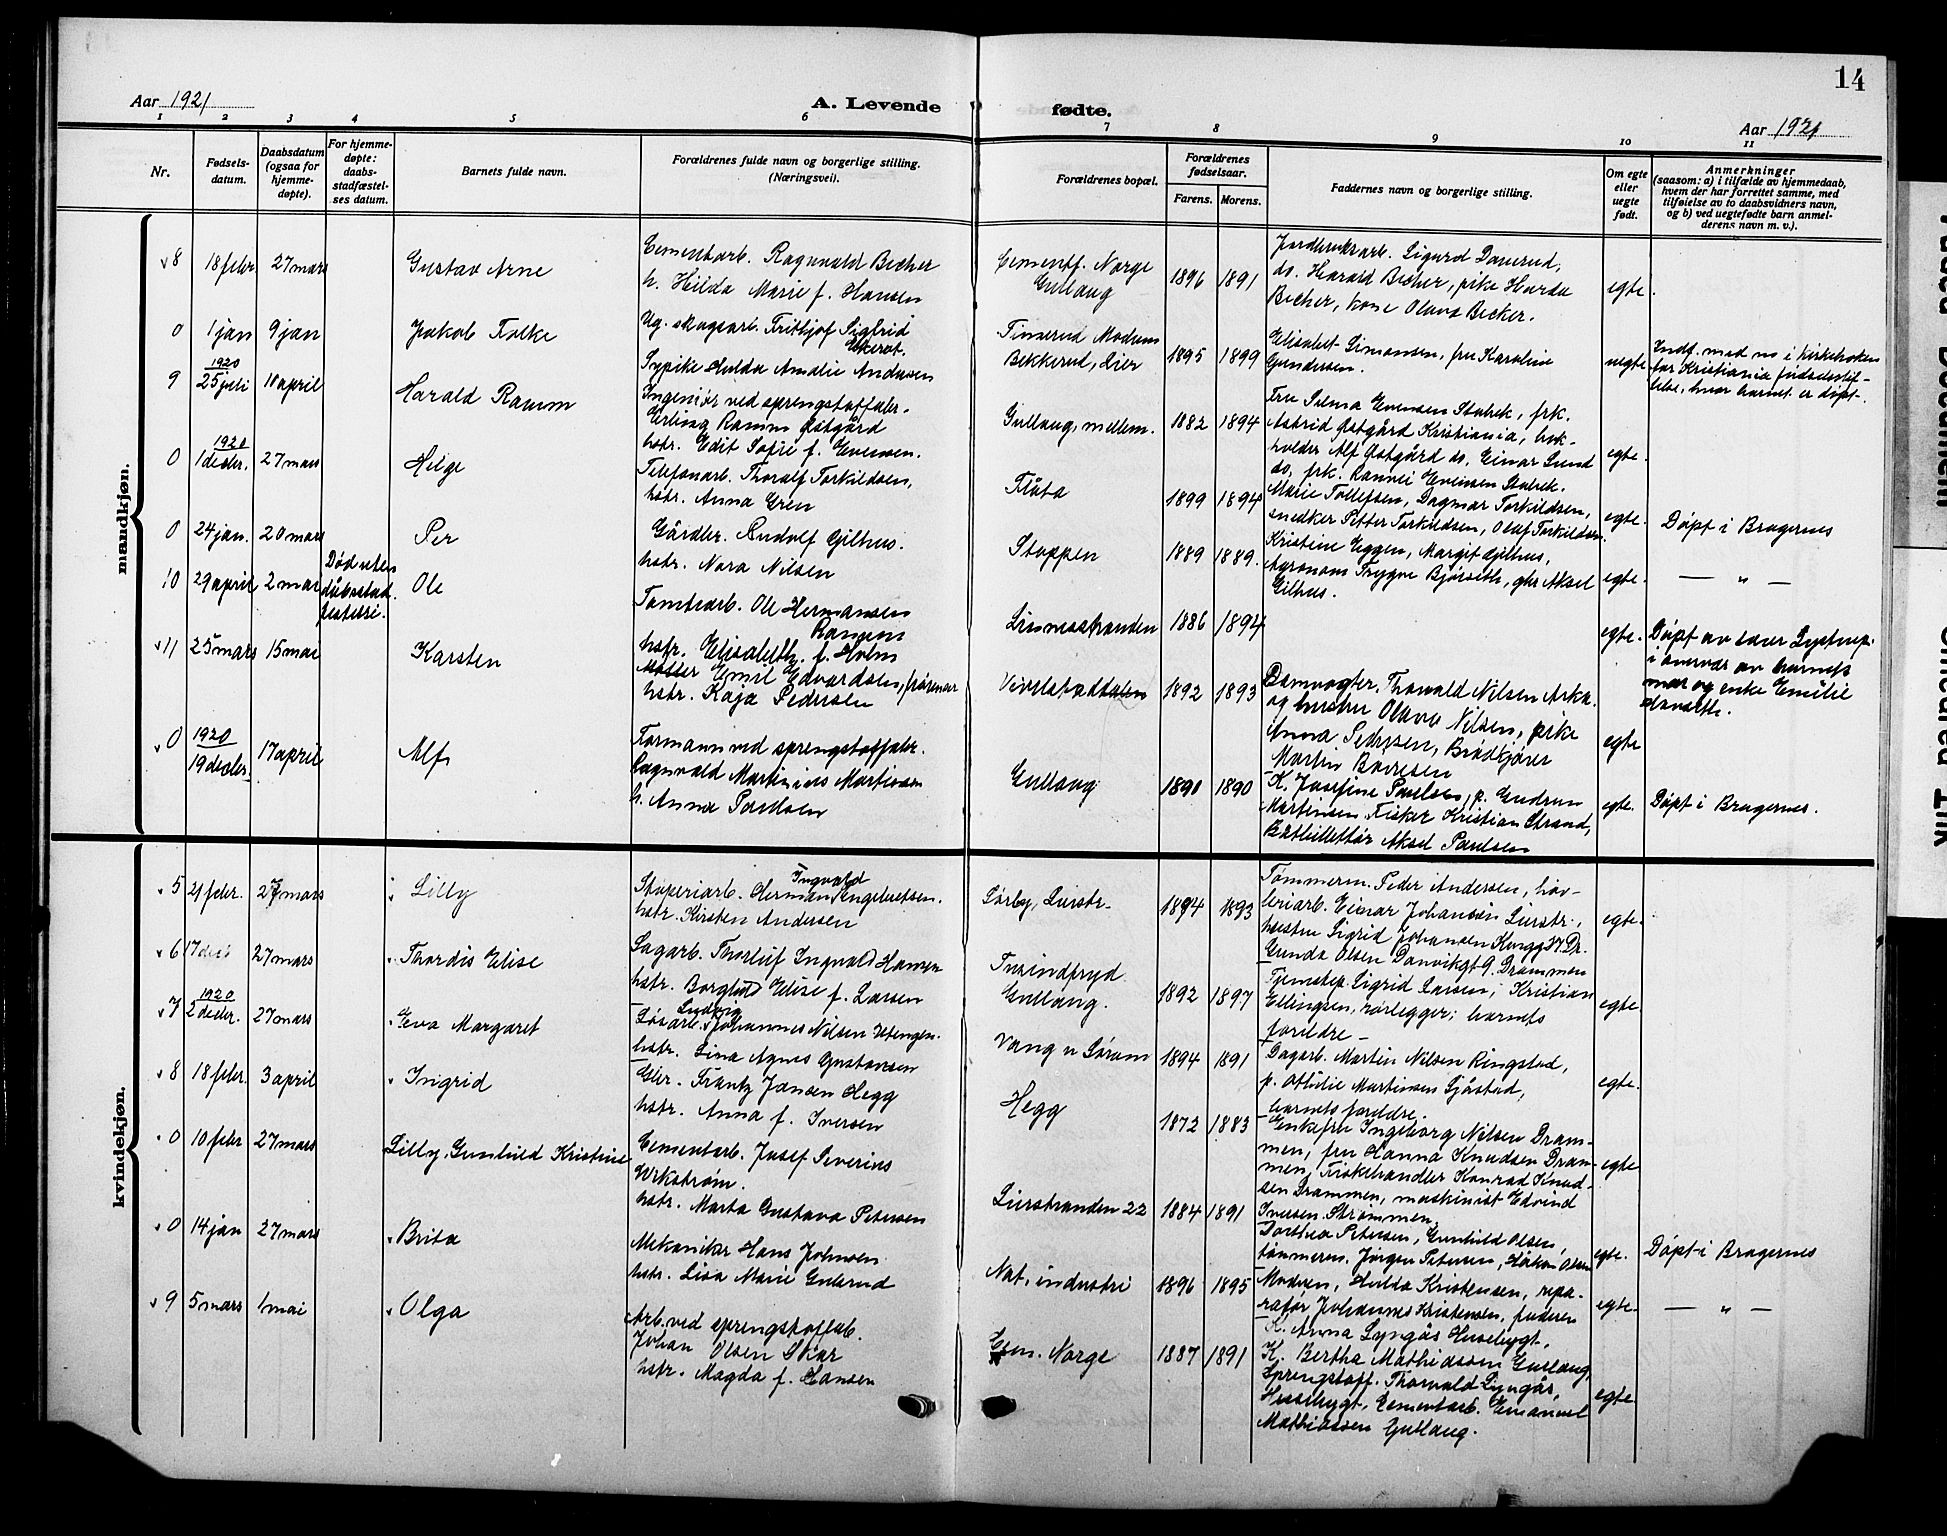 14
Aar 1921
A. Levende fødte.
Aar 1921
1 2 3 4 5 6 7 8 9 10 11
Nr.
Fødsels-
datum.
Daabsdatum
(ogsaa for
hjemme-
døpte).
For hjemme-
døpte:
daabs-
stadfæstel-
ses datum.
Barnets fulde navn.
Forældrenes fulde navn og borgerlige stilling.
(Næringsvei).
Forældrenes bopæl.
Forældrenes
fødselsaar.
Farens. Morens.
Faddernes navn og borgerlige stilling.
Om egte
eller
uegte
født.
Anmerkninger
(saasom: a) i tilfælde av hjemmedaab,
hvem der har forrettet samme, med
tilføielse av to daabsvidners navn,
og b) ved uegtefødte barn anmel-
derens navn m. v.).
mandkjøn.
8 18 febr 27 mars
Gustav Arne
Cementarb. Ragnvald Becher
h. Hilda Marie f. Hansen
Cementf. Norge
Gullaug
1896 1891
Jordbruksarb. Sigurd Damerud,
do. Harald Becher, pike Harda
Becher, kone Olava Becker.
egte.
0 1 jan 9 jan
Jakob Folke
Ug. skogsarb. Fritjof Sigfrid
Ekerot.
Sypike Hulda Amalie Andersen
Bekkerud, Lier
1895 1899
Elisabet Simonsen, fru Karoline
Gundersen.
uegte
Indf. med no i kirkeboken
for Kristiania fødselsstif-
telse, hvor barnet er døpt.
9 1920
25 juli 10 april
Harald Ramm
Ingeniør ved sprengstoffabr.
Erling Ramm Østgård
hstr. Edit Sofie f. Evensen.
Gullaug, mellem.
1882 1894
Fru Selma Evensen Stabek, frk.
Astrid Østgård Kristiania, bok-
holder Alf Østgård do. Einar Lund
do, frk. Ranvei Evensen Stabek.
egte.
0 1920
1 decbr. 27 mars
Helge
Telefonarb. Thoralf Torkildsen,
hstr. Anna Gren
Flåta
1899 1894
Marie Tollefsen, Dagmar Torkildsen,
snedker Petter Torkildsen, Olaf Torkildsen.
egte.
Døpt i Bragernes
0 24 jan. 20 mars
Per
Gårdbr. Rudolf Gilhus.
hstr. Nora Nilsen
Stoppen
1889 1889.
Kristine Eggen, Margit Gilhus,
Agronom Trygve Bjørseth, gbr Aksel
Gilhus.
egte.
— " —
10 29 april 2 mai
Død uten
dåpsstad-
festelse.
Ole
Tomtearb. Ole Hermansen
Ramon
hstr. Elisabeth f. Holm
1886 1894
egte.
Døpt av
i overvær av barnets
mor og enke Emilie
11 25 mars 15 mai
Karsten
Møller Emil Edvardsen,
hstr. Kaja Pedersen
1892 1893
Damvogter. Thorvald Nilsen Asker
og hustru Olava Nilsen, pike
Anna Pedersen, Brødkjører
Martin
egte
0 1920
19 decbr. 17 april
Alf
Formann ved sprengstoffabr.
Ragnvald Martinius Martinsen
h. Anna Paulsen
Gullaug
1890 1890
K. Josefine Paulsen, p. Gudrun
Martinsen, Fisker Kristian Strand,
Båtbillettør Aksel Paulsen
egte.
Døpt i Bragernes.
kvindekjøn.
5 21 febr. 27 mars
Lilly
Støperiarb. Herman Ingvald Engebretsen.
hstr. Kirsten Andersen
Sørby, Lierstr.
1894 1893
Tømmerm. Peder Andersen, høv-
leriarb. Einar Johansen Lierstr.,
hustru Sigrid Johansen Kongg 37 Dr.
Gunda Olsen Danvikgt 9. Drammen
egte.
6 17 27 mars
Thordis Elise
Sagarb. Thorleif Ingvald Hansen
hstr. Borghild Elise f. Larsen
Gullaug.
1892 1897
Tjenstep. Sigrid Larsen; Kristian
Ellingsen, rørlegger; barnets
foreldre —
egte.
7 1920
2 decbr. 27 mars
Eva Margaret
Løsarb. Ludvig Johannes Nilsen Utengen.
hstr. Lina Agnes Gustavsen
Vang u Sørum
1894 1891
Dagarb. Martin Nilsen Ringstad,
p. Othilie Martinsen Sjåstad,
barnets foreldre.
egte.
8 18 febr. 3 april
Ingrid
Gbr. Frantz Jansen Hegg
hstr. Anna f. Iversen
Hegg
1872 1883
Enkefru Ingeborg Nilsen Dram-
men, fru Hanna Knudsen Dram-
men, Fiskehandler Konrad Knud-
sen Drammen, maskinist Edvind
Iversen Strømmen,
egte
0 10 febr 27 mars
Lilly Gunhild Kristine
Cementarb. Josef Severins
Wikstrøm.
hstr. Marta Gustava Petersen
Lierstranden 22
1884 1891
Dorthea Petersen, Gunhild Olsen,
tømmerm. Jørgen Petersen, Håkon Olsen
egte.
Døpt i Bragernes
0 14 jan 27 mars
Brita
Mekaniker Hans Johnsen
hstr. Lisa Marie Gulsrud
Nat. industri
1896 1895
Modren, Hulda Kristensen, repa-
ratør Johannes Kristensen, faderen
egte
— " —
9 5 mars 1 mai
Olga
Arb. ved sprengstoffab.
Johan Olsen Skar
hstr. Magda f. Hansen
Cem. Norge
1887 1891
K. Anna Lyngås Husebygt,
K. Bertha Mathiassen Gullaug,
Sprengstoff. Thorvald Lyngås,
Husebygt, Cementarb. Emanuel
Mathiassen Gullaug.
egte.